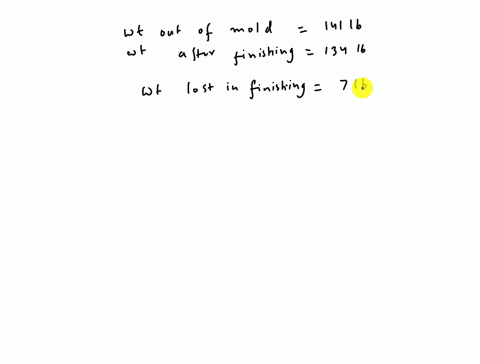 wt out of mold = 141 lb
wt after finishing = 134 lb
wt lost in finishing = 7 lb